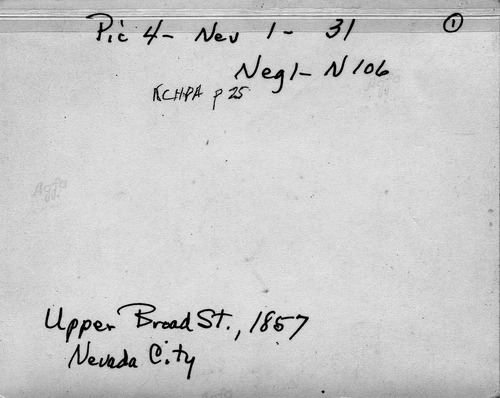 Pic 4- Nev 1- 31 1
Neg1- N106
KCHPA p 25
Agfa
Upper Broad St., 1857
Nevada City